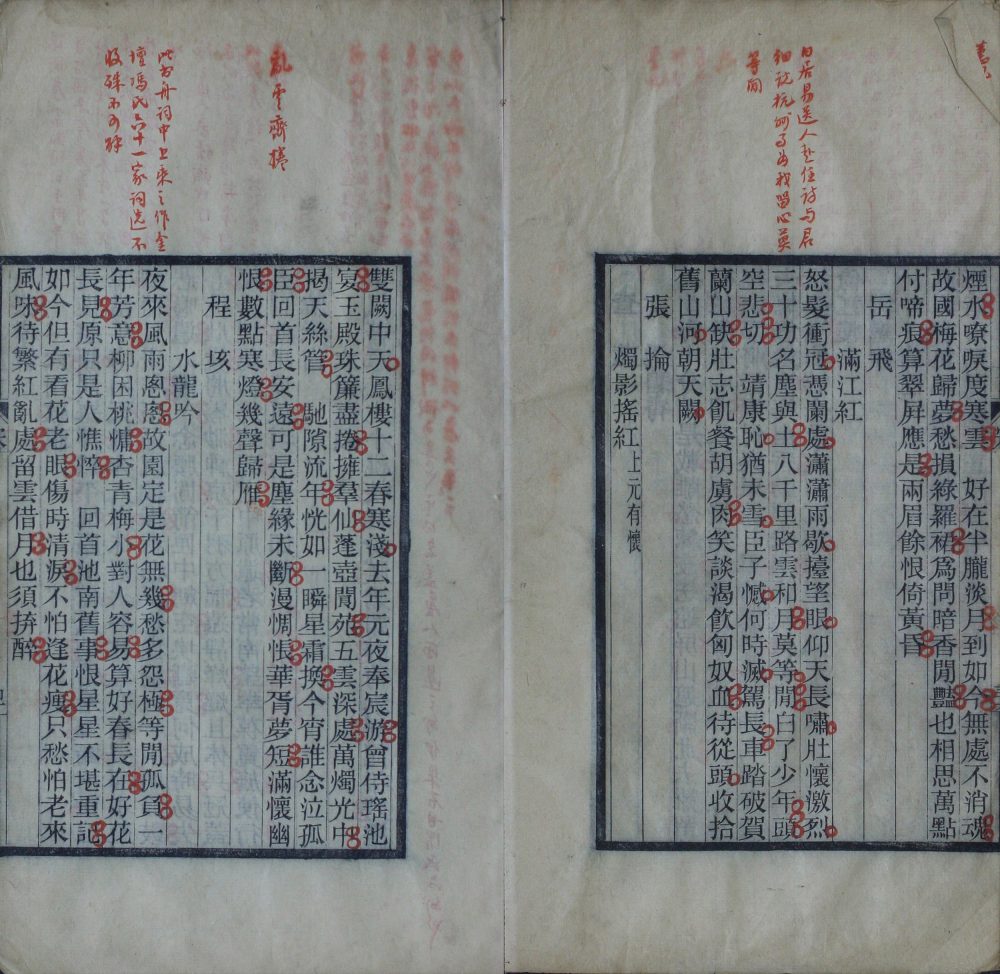 白居易送人赴任詩与君
細說杭州事為我留心莫
等閒
煙水嘹唳度寒雲　好在半朧淡月到如今無處不消魂
故國梅花歸夢愁損綠羅裙爲問暗香閒豔也相思萬點
付啼痕算翠屏應是兩眉餘恨倚黃昏
岳飛
滿江紅
怒髮衝冠憑闌處瀟瀟雨歇擡望眼仰天長嘯壯懷激烈
三十功名塵與土八千里路雲和月莫等閒白了少年頭
空悲切　靖康恥猶未雪臣子憾何時滅駕長車踏破賀
蘭山缺壯志飢餐胡虜肉笑談渴飲匈奴血待從頭收拾
舊山河朝天闕
張掄
燭影搖紅上元有懷
亂雲齊捲
此書舟詞中上乘之作金
壇馮氏六十一家詞選不
收殊不可解
雙闕中天鳳樓十二春寒淺去年元夜奉宸游曾侍瑤池
宴玉殿珠簾盡捲擁羣仙蓬壺閬苑五雲深處萬燭光中
揭天絲管　馳隙流年恍如一瞬星霜換今宵誰念泣孤
臣回首長安遠可是塵緣未斷漫惆悵華胥夢短滿懷幽
恨數點寒燈幾聲歸雁
程垓
水龍吟
夜來風雨悤悤故園定是花無幾愁多怨極等閒孤負一
年芳意柳困桃慵杏青梅小對人容易算好春長在好花
長見原只是人憔悴　回首池南舊事恨星星不堪重記
如今但有看花老眼傷時清淚不怕逢花瘦只愁怕老來
風味待繁紅亂處留雲借月也須拚醉